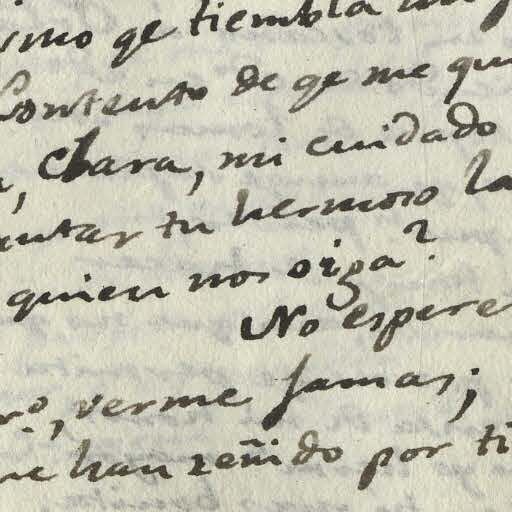 ismo qe tiembla
Contento de qe me qu
, Clara, mi cuidado
untar tu hermoso la
quien nos oiga?
No espere
rº, verme Jamas;
ue han reñido por ti